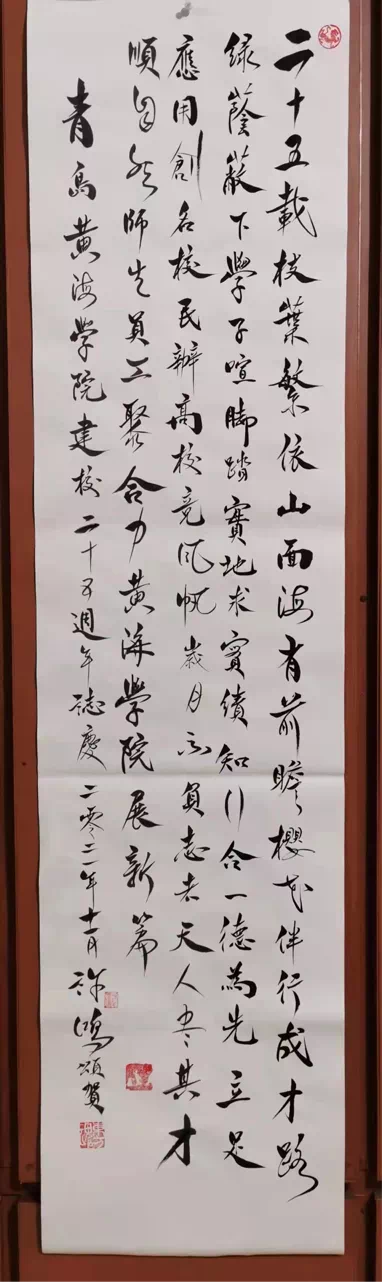 二十五載枝葉繁依山面海有前瞻櫻花伴行成才路
绿蔭蔽下學子喧脚踏實地求實績知行合一德為先立足
應用創名校民辦高校竞风帆歲月不負志者天人尽其才
順自然師生員工聚合力黄海學院展新篇
青島黄海学院建校二十五週年誌慶二零二一年十一月許鴻頌賀